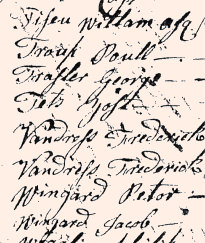 William Esq
Traub Poull
Trasler George
Tets Yost
Vandress Frederick
Vandress Frederick
Wingard Petor
Wingard Jacob